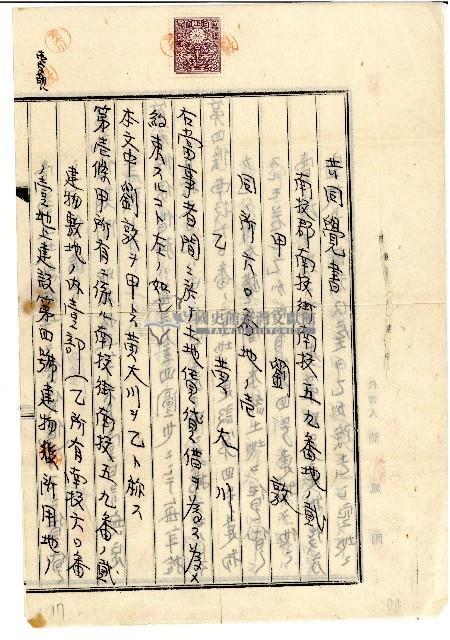 共同覺書
南投郡南投街南投五九番地ノ貳
甲 劉敦
同所六〇番地ノ壱
乙 黄大川
右當事者間ニ於テ土地賃貸借ヲ為ス為メ
約束スルコト左ノ如シ
本文中劉敦ヲ甲ト黄大川ヲ乙ト称ス
第壱條甲所有ニ係ル南投街南投五九番ノ貳
建物敷地ノ内壹部(乙所有南投六〇番
ノ壹地上建設第四號建物 所用地ノ
國史館臺灣文獻館